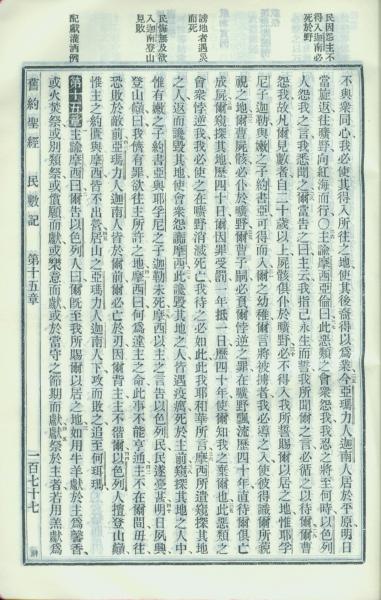 民因怨主不
得入迦南必
死於野
謗地者遇災
而死
民悔無及欲
入迦南登山
見敗
配獻灌酒例
不與衆同心我必使其得入所往之地使其後裔得以爲業今亞瑪力人迦南人居於平原明日
當旋返往曠野向紅海而行〇主諭摩西亞倫曰此惡類之會衆怨我我忍之將至何時以色列
人怨我之言我悉聞之爾當告之曰主云我指己永生而誓我所聞爾之言必循之以待爾爾曹
怨我故凡爾見數者自二十歲以上屍骸俱仆於曠野必不得入我所誓賜爾以居之地惟耶孚
尼子迦勒與嫩之子約書亞可得而入爾之幼稚爾言將被擄者我必導之入使彼得識爾所藐
視之地爾曹屍骸必仆於曠野爾曹子嗣必負爾悖逆之罪在曠野飄流歷四十年直待爾俱亡
成屍爾窺探其地歷四十日爾因罪受罰一年抵一日歷四十年使爾知我之棄爾也此惡類之
會衆悖逆我我必使之在曠野消滅死亡我待之必如此此我耶和華所言摩西所遣窺探其地
之人返而讒毀其地使會衆怨讟摩西此讒毀其地之人皆遇疫厲死於主前窺探其地之人中
惟有嫩之子約書亞與耶孚尼之子迦勒未死摩西以主之言告以色列民民遂憂甚明日夙興
登山巔曰我儕有罪欲往主所許之地摩西曰何爲違主之命此事不能亨通主不在爾間毋往
恐敗於敵前亞瑪力人迦南人皆於爾前爾必亡於刃因爾背主主不偕爾以色列人擅登山巔
惟主之約匱與摩西皆不出營居山之亞瑪力人迦南人下攻而敗之追至何珥瑪
第十五章主諭摩西曰爾告以色列人曰爾旣至我所賜爾以居之地如用牛羊獻於主爲馨香
或火焚祭或別類祭或償願而獻或樂意而獻或於當守之節期而獻獻祭於主者若用羔獻爲
舊約聖經 民數記 第十五章 一百七十七